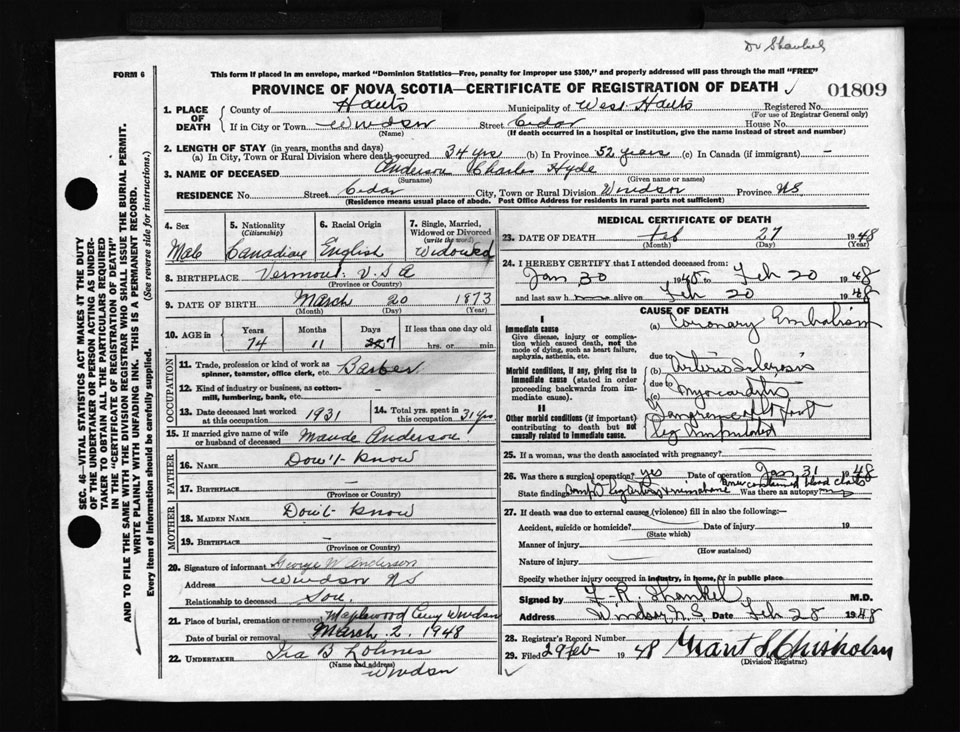 Dr Shankel
FORM 6
This form if placed in an envelope, marked "Dominion Statistics—Free, penalty for improper use $300," and properly addressed will pass through the mail "FREE"
PROVINCE OF NOVA SCOTIA—CERTIFICATE OF REGISTRATION OF DEATH 01809
1. PLACE OF DEATH County of Hants Municipality of West Hants Registered No.
(For use of Registrar General only)
If in City or Town Windsor Street Cedar House No.
(Name) (If death occurred in a hospital or institution, give the name instead of street and number)
2. LENGTH OF STAY (in years, months and days)
(a) In City, Town or Rural Division where death occurred 34 yrs (b) In Province 52 years (c) In Canada (if immigrant) —
3. NAME OF DECEASED Anderson Charles Hyde
(Surname) (Given name or names)
RESIDENCE No. Street Cedar City, Town or Rural Division Windsor Province NS
(Residence means usual place of abode. Post Office Address for residents in rural parts not sufficient)
4. Sex Male
5. Nationality (Citizenship) Canadian
6. Racial Origin English
7. Single, Married, Widowed or Divorced (write the word) Widowed
8. BIRTHPLACE Vermont. U.S A
(Province or Country)
9. DATE OF BIRTH March 20 1873
(Month) (Day) (Year)
10. AGE in Years Months Days If less than one day old
74 11 7 hrs. or min.
OCCUPATION
11. Trade, profession or kind of work as spinner, teamster, office clerk, etc. Barber
12. Kind of industry or business, as cotton-mill, lumbering, bank, etc. —
13. Date deceased last worked at this occupation 1931
14. Total yrs. spent in this occupation 31 yrs
15. If married give name of wife or husband of deceased Maude Anderson
FATHER
16. NAME Don't Know
17. BIRTHPLACE —
MOTHER
18. MAIDEN NAME Don't Know
19. BIRTHPLACE —
(Province or Country)
20. Signature of informant George W Anderson
Address Windsor NS
Relationship to deceased Son.
21. Place of burial, cremation or removal Maplewood Cemy Windsor
Date of burial or removal March. 2. 1948
22. UNDERTAKER Ira B Lohnes
(Name and address)
Windsor
MEDICAL CERTIFICATE OF DEATH
23. DATE OF DEATH Feb 27 1948
(Month) (Day) (Year)
24. I HEREBY CERTIFY that I attended deceased from:
Jan 30 to Feb 20 1948
and last saw h alive on Feb 20 1948
CAUSE OF DEATH
I
Immediate cause
Give disease, injury or complication which caused death, not the mode of dying, such as heart failure, asphyxia, asthenia, etc.
(a) Coronary Embolism
due to
Morbid conditions, if any, giving rise to immediate cause (stated in order proceeding backwards from immediate cause).
(b) Arterio Sclerosis
due to
(c) Myocarditis
II
Other morbid conditions (if important) contributing to death but not causally related to immediate cause.
Gangrene of foot
leg amputated
25. If a woman, was the death associated with pregnancy?
26. Was there a surgical operation? yes Date of operation Jan 31 1948
State findings
contained blood clots
Was there an autopsy? no
27. If death was due to external causes (violence) fill in also the following:—
Accident, suicide or homicide? Date of injury 19
(State which)
Manner of injury
(How sustained)
Nature of injury
Specify whether injury occurred in industry, in home, or in public place
Signed by F. R. Shankel M.D.
Address Windsor, N.S. Date Feb 28 1948
28. Registrar's Record Number
29. Filed 29 Feb 1948 Grant S Chisholm
(Division Registrar)
SEC. 46—VITAL STATISTICS ACT MAKES IT THE DUTY
OF THE UNDERTAKER OR PERSON ACTING AS UNDER-
TAKER TO OBTAIN ALL THE PARTICULARS REQUIRED
IN THE "CERTIFICATE OF REGISTRATION OF DEATH"
AND TO FILE THE SAME WITH THE DIVISION REGISTRAR WHO SHALL ISSUE THE BURIAL PERMIT.
WRITE PLAINLY WITH UNFADING INK. THIS IS A PERMANENT RECORD.
Every item of Information should be carefully supplied. (See reverse side for instructions.)